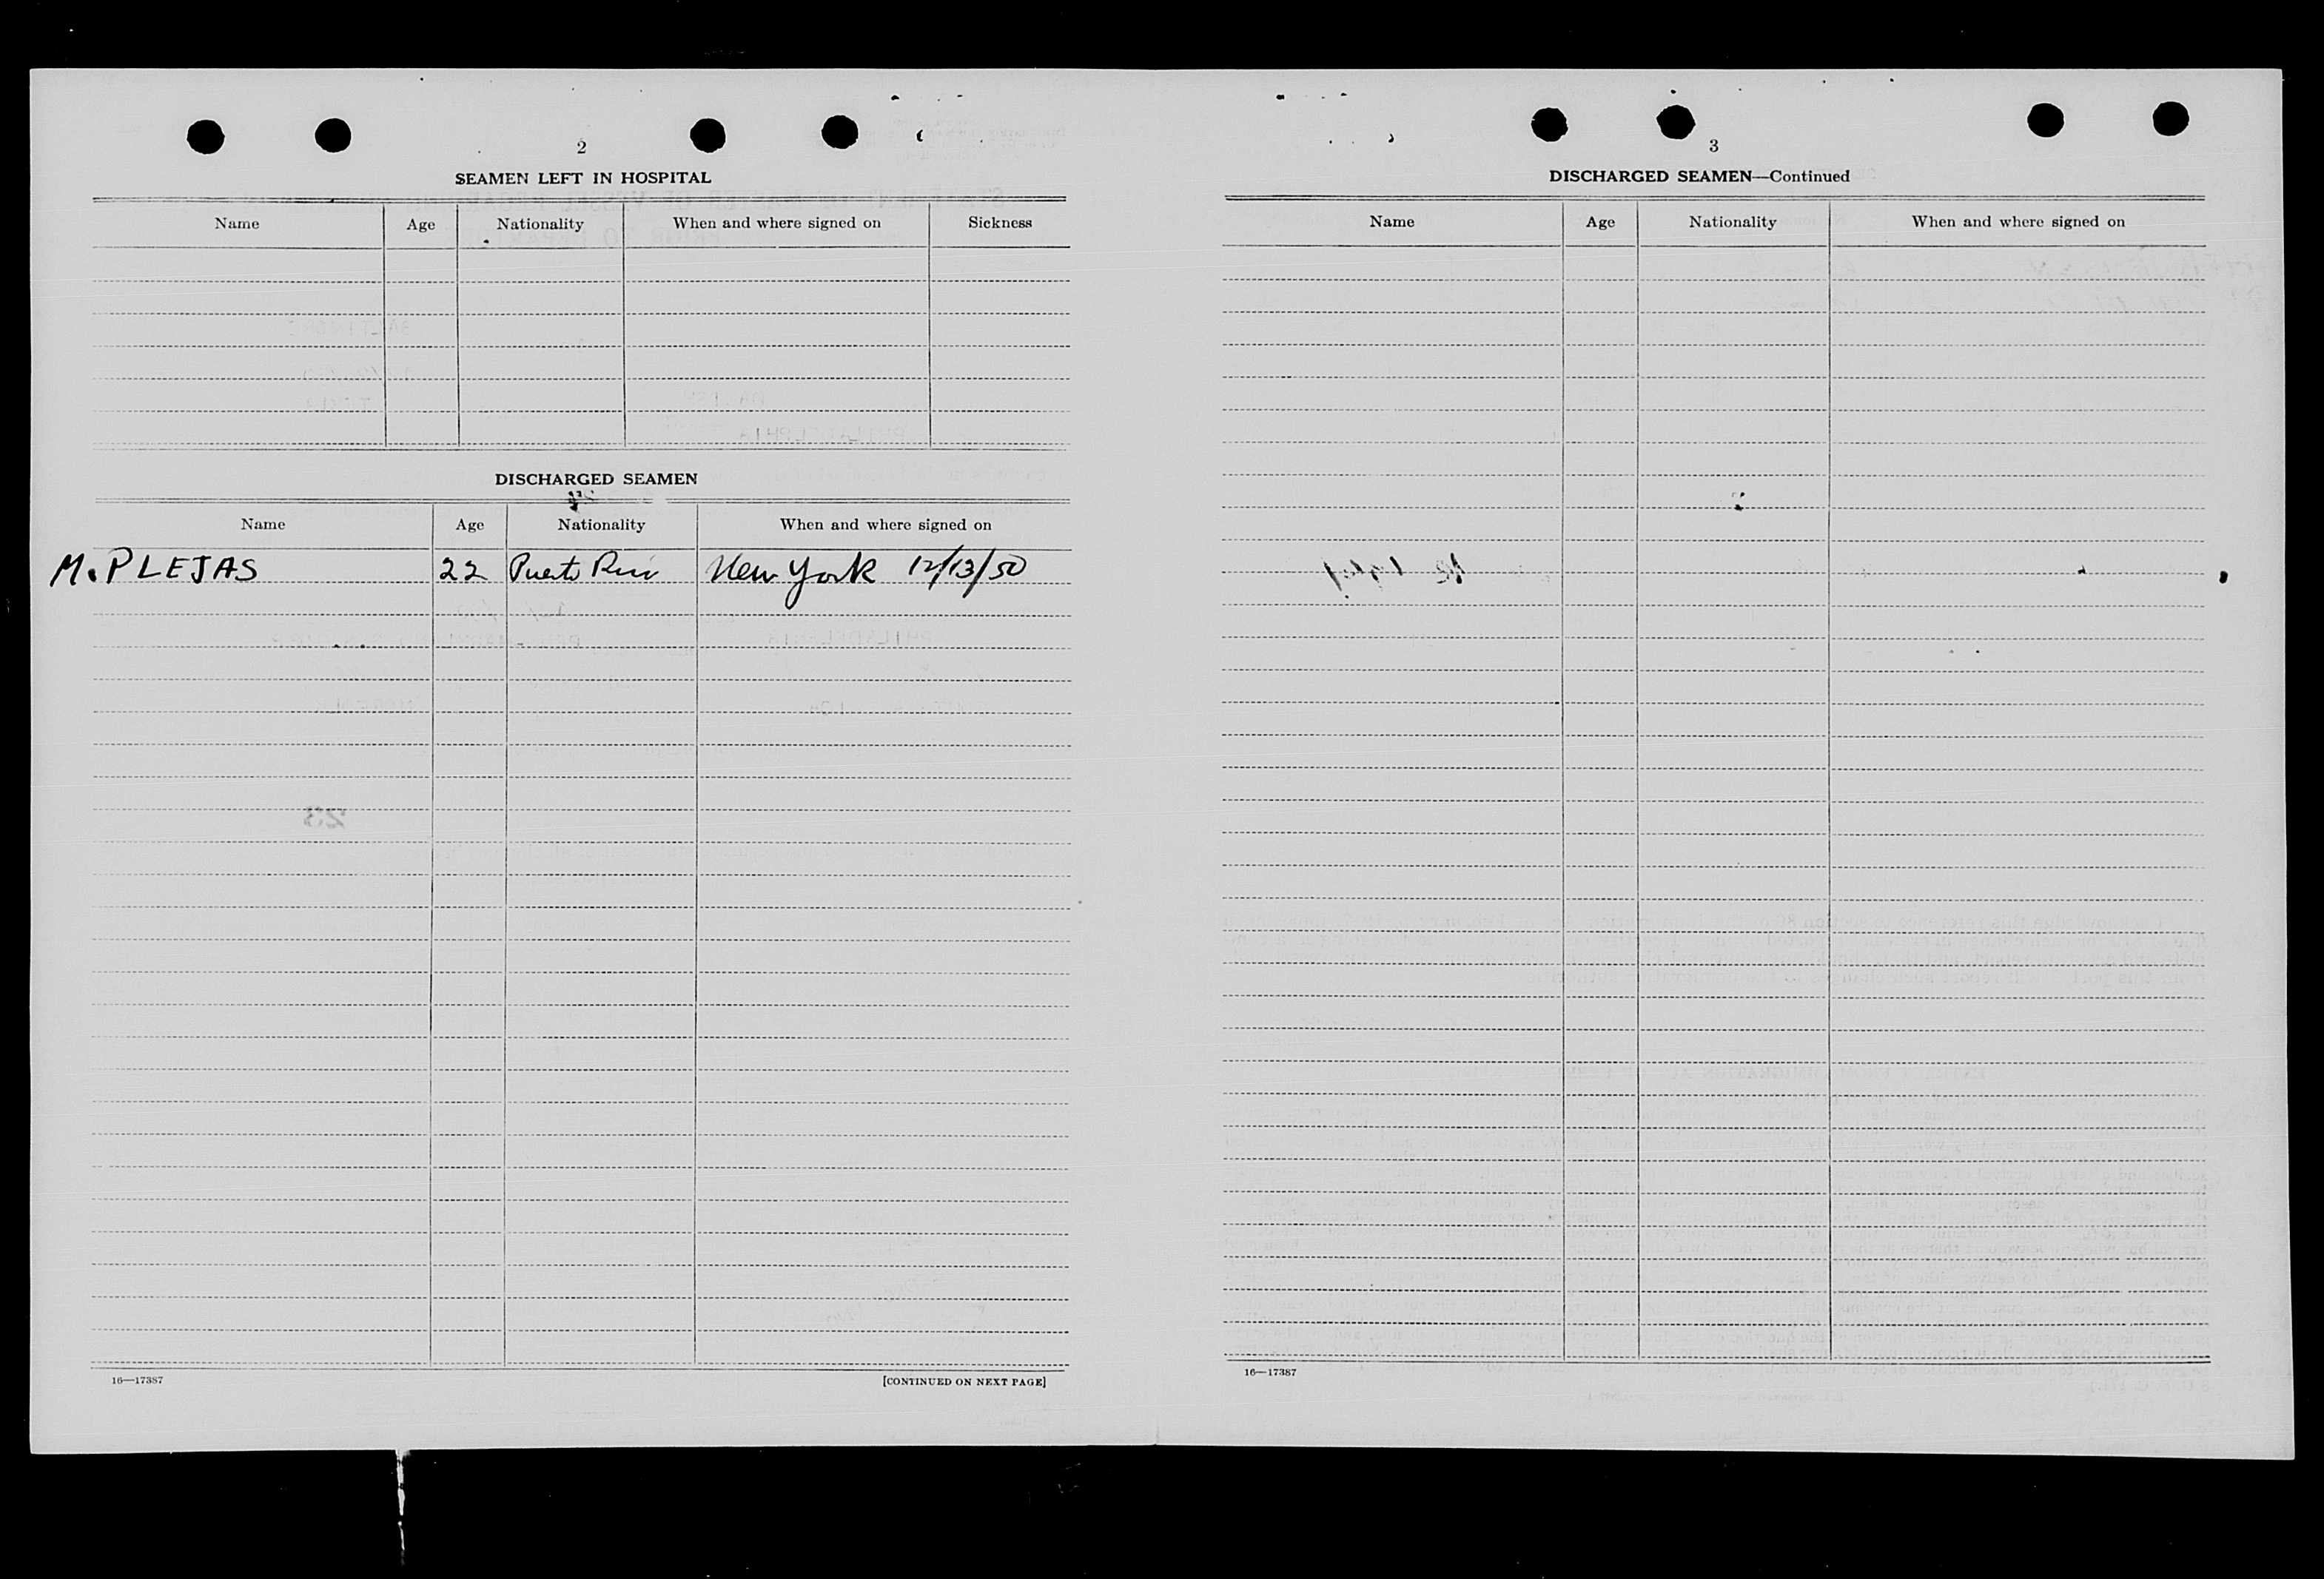 2
SEAMEN LEFT IN HOSPITAL
Name Age Nationality When and where signed on Sickness
DISCHARGED SEAMEN
Name Age Nationality When and where signed on
M. PLEJAS 22 Puerto Rico New York 12/13/50
16—17387 [CONTINUED ON NEXT PAGE]
3
DISCHARGED SEAMEN—Continued
Name Age Nationality When and where signed on
16—17387